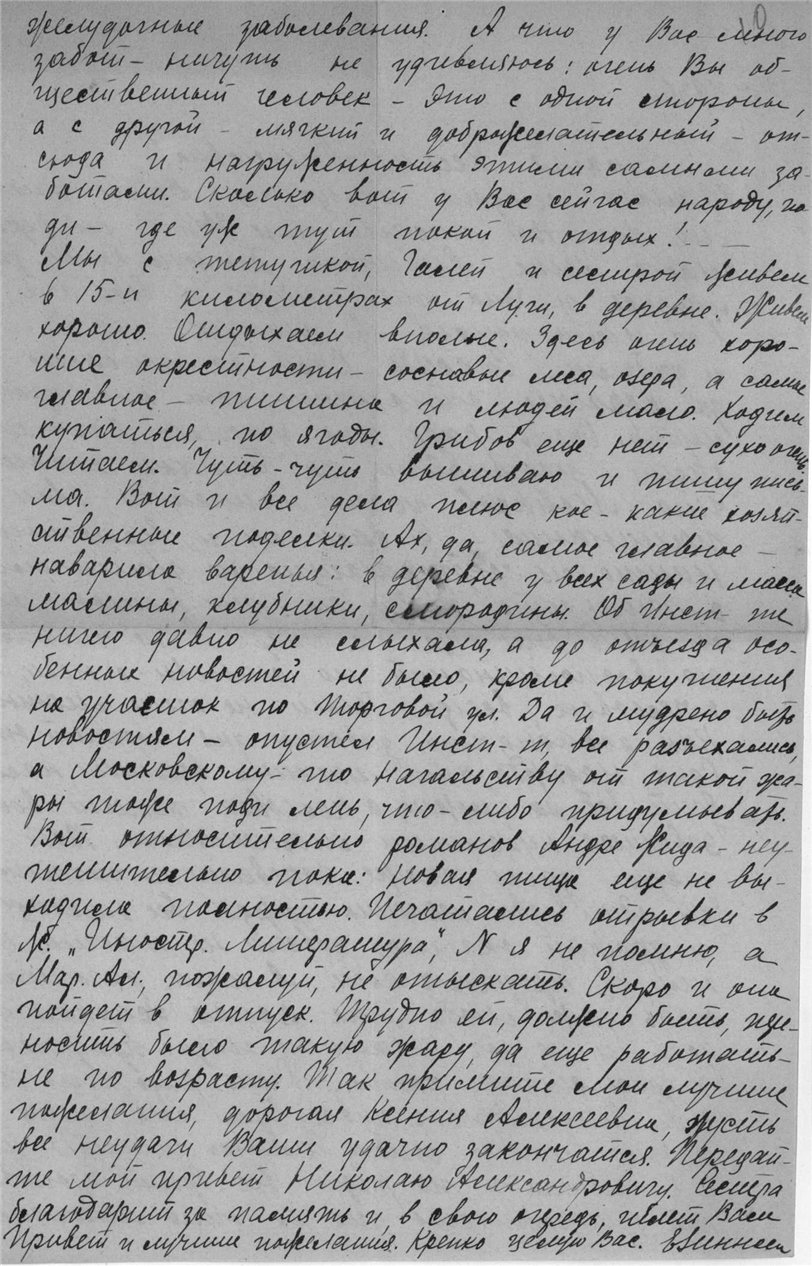 желудочные заболевания. А что у Вас много
забот – ничуть не удивляюсь: очень Вы об-
щественный человек – это с одной стороны,
а с другой – мягкий и доброжелательный – от-
сюда и нагруженность этими самыми за-
ботами. Сколько вот у Вас сейчас народу, по
ди – где уж тут покой и отдых!...
Мы с тетушкой, Галей и сестрой живем
в 15-и километрах от Луги, в деревне. Живем
хорошо. Отдыхаем вполне. Здесь очень хоро-
шие окрестности – сосновые леса, озера, а самое
главное – тишина и людей мало. Ходим
купаться, по ягоды. Грибов еще нет – сухо очень.
Читаем. Чуть-чуть вышиваю и пишу пись-
ма. Вот и все дела плюс кое-какие хозяй-
ственные поделки. Ах, да, самое главное –
наварила варенья: в деревне у всех сады и масса
малины, клубники, смородины. Об Инст-те
ничего давно не слыхала, а до отъезда осо-
бенных новостей не было, кроме покушения
на участок по Торговой ул. Да и мудрено быть
новостям – опустел Инст-т, все разъехались,
а Московскому-то начальству от такой жа-
ры тоже поди лень, что-либо придумывать.
Вот относительно романов Андре Жида – неу-
тешительно пока: Новая пища еще не вы-
ходила полностью. Печатались отрывки в
ж. „Иностр. Литература“, N я не помню, а
Мар. Ал., пожалуй, не отыскать. Скоро и она
пойдет в отпуск. Трудно ей, должно быть, пере-
носить было такую жару, да еще работать –
не по возрасту. Так примите мои лучшие
пожелания, дорогая Ксения Алексеевна, пусть
все неудачи Ваши удачно закончатся. Передай-
те мой привет Николаю Александровичу. Сестра
благодарит за память и, в свою очередь, шлет Вам
Привет и лучшие пожелания. Крепко целую Вас.